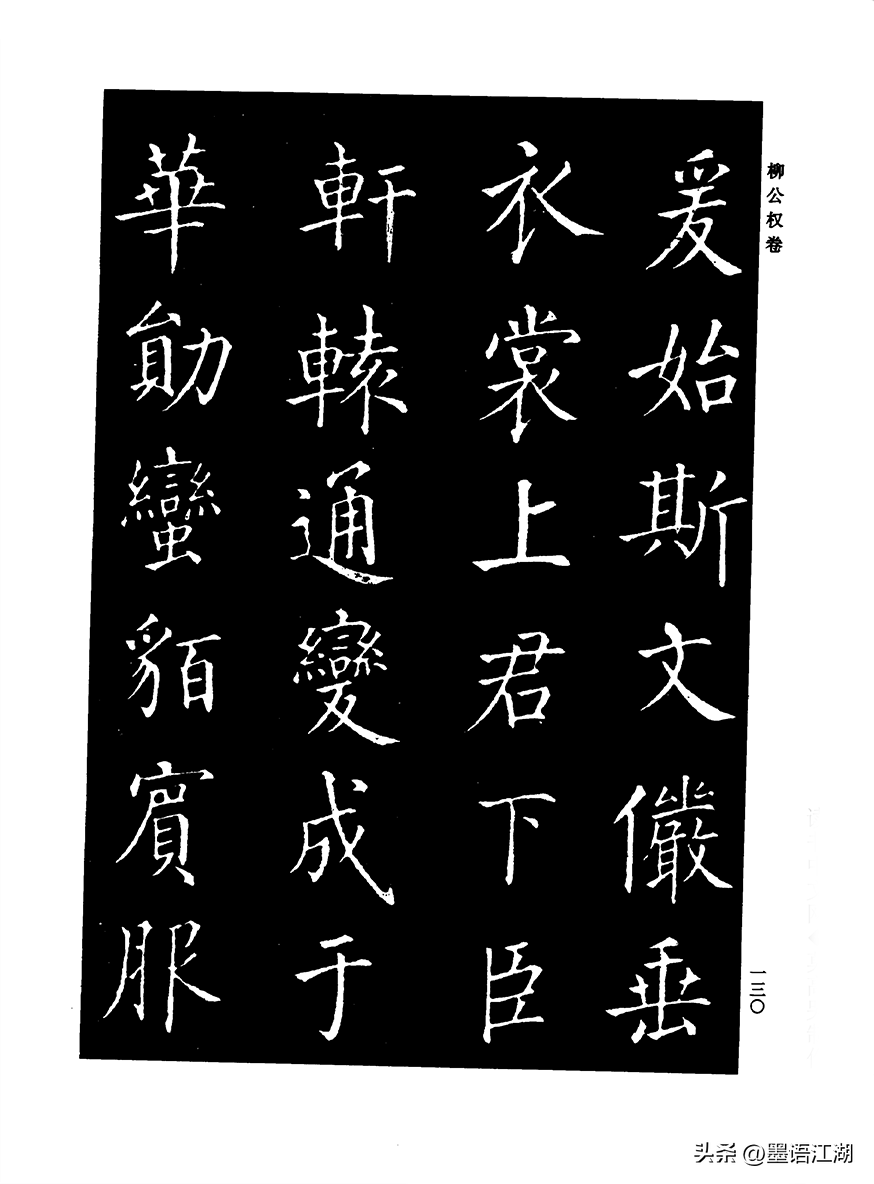 柳公权卷
爰始斯文儼垂
衣裳上君下臣
軒轅通變成于
華勛蠻貊賓服
一三〇
头条 @墨语江湖